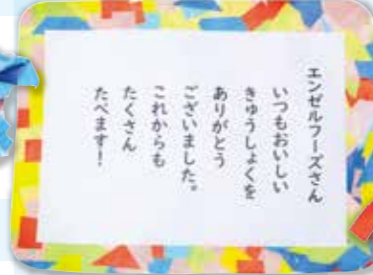 エンゼルフーズさん
いつもおいしい
きゅうしょくを
ありがとう
ございました。
これからも
たくさん
たべます！